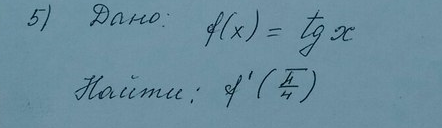 5) Дано: f(x) = tg x
Найти: f'(π/4)